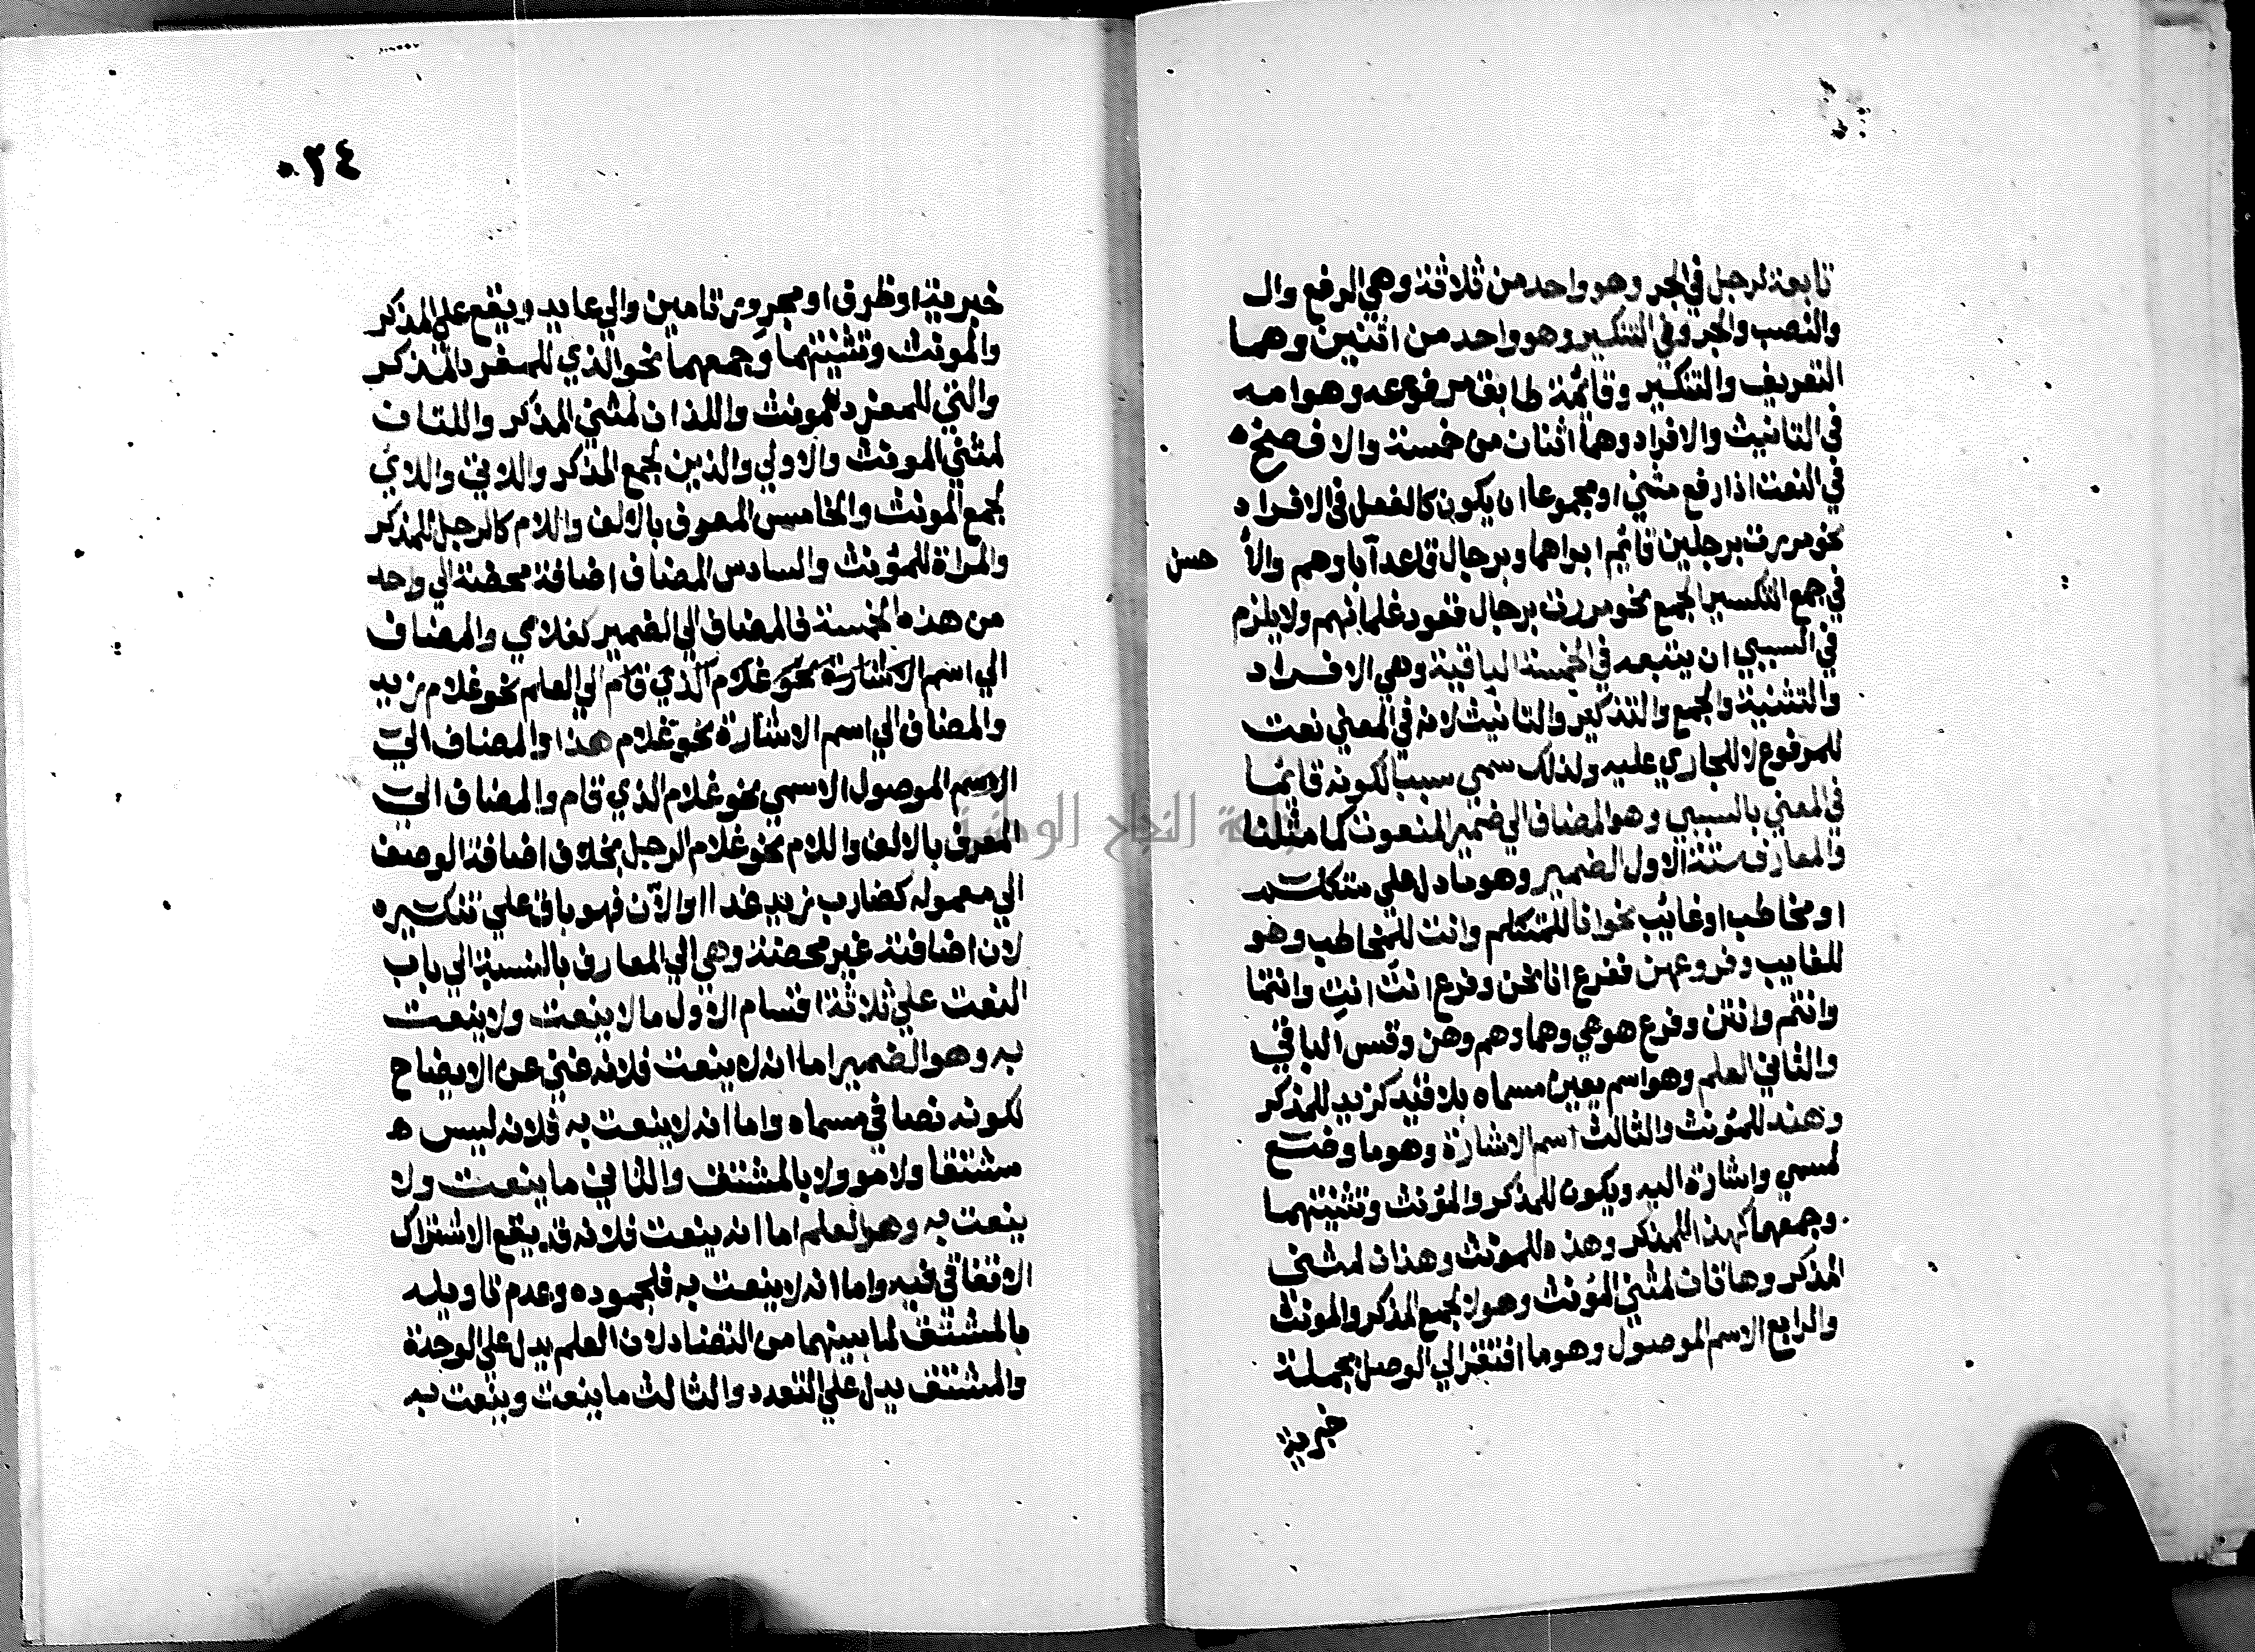 تابعة لرجل في الجر وهو واحد من ثلاثة وهي الرفع وال
والنصب والجر وفي التنكير وهو واحد من اثنين وهما
التعريف والتنكير وقائمة طابق مرفوعه وهو امه
في التانيث والافراد وهما اثنان من خمسة والافصح
في النعت اذا رفع مثني او مجموعا ان يكون كالفعل في الافراد
نحو مررت برجلين قائم ابواهما وبرجال قاعد آباوهم والأ حسن
في جمع التكسير الجمع نحو مررت برجال قعود غلمانهم ولا يلزم
في السببي ان يتبعه في الخمسة الباقية وهي الافراد
والتثنية والجمع والتذكير والتانيث لانه في المعني نعت
للمرفوع لا للجاري عليه ولذلك سمي سببيا لكونه قائما
في المعني بالسببي وهو المضاف الي ضمير المنعوت كما مثلنا
والمعارف ستة الاول الضمير وهو ما دل علي متكلم
او مخاطب او غائب نحو انا للمتكلم وانت للمخاطب وهو
للغايب وفروعهن ففرع انا نحن وفرع انت انتِ وانتما
وانتم وانتن وفرع هو هي وهما وهم وهن وقس الباقي
والثاني العلم وهو اسم يعين مسماه بلا قيد كزيد للمذكر
وهند للمؤنث والثالث اسم الاشارة وهو ما وضع
لمسمي واشارة اليه ويكون للمذكر والمؤنث وتثنيتهما
وجمعهما كهذا للمذكر وهذه للمونث وهذان لمثني
المذكر وهاتان لمثني المؤنث وهولا لجمع المذكر والمونث
والرابع الاسم الموصول وهو ما افتقر الي الوصل بجملة
خبرية
٠٢٤
خبرية او ظرف او مجرور تامين والي عايد ويقع علي المذكر
والمونث وتثنيتهما وجمعهما نحو الذي للمفرد المذكر
والتي للمفرد المونث واللذان لمثني المذكر واللتان
لمثني المونث والاولي والذين لجمع المذكر واللاتي واللاي
لجمع المونث والخامس المعرف بالالف واللام كالرجل للمذكر
والمراة للمؤنث والسادس المضاف اضافة محضة الي واحد
من هذه الخمسة فالمضاف الي الضمير كغلامي والمضاف
الي اسم الاشارة نحو غلام الذي قام الي العلم نحو غلام زيد
والمضاف الي اسم الاشارة نحو غلام هذا والمضاف الي
الاسم الموصول الاسمي نحو غلام الذي قام والمضاف الي
المعرف بالالف واللام نحو غلام الرجل بخلاف اضافة الوصف
الي معموله كضارب زيد غدا او الآن فهو باق علي تنكيره
لان اضافته غير محضة وهي الي المعارف بالنسبة الي باب
النعت علي ثلاثة اقسام الاول ما لا ينعت ولا ينعت
به وهو الضمير اما انه لا ينعت فلانه غني عن الايضاح
لكونه نصا في مسماه واما انه لا ينعت به فلانه ليس ه
مشتقا ولا موولا بالمشتق والثاني ما ينعت ولا
ينعت به وهو العلم اما انه ينعت فلانه قد يقع الاشتراك
الاتفاقي فيه واما انه لا ينعت به فلجموده وعدم تاويله
بالمشتق لما بينهما من التضاد لان العلم يدل علي الوحدة
والمشتق يدل علي التعدد والثالث ما ينعت وينعت به
جامعة النجاح الوطنية